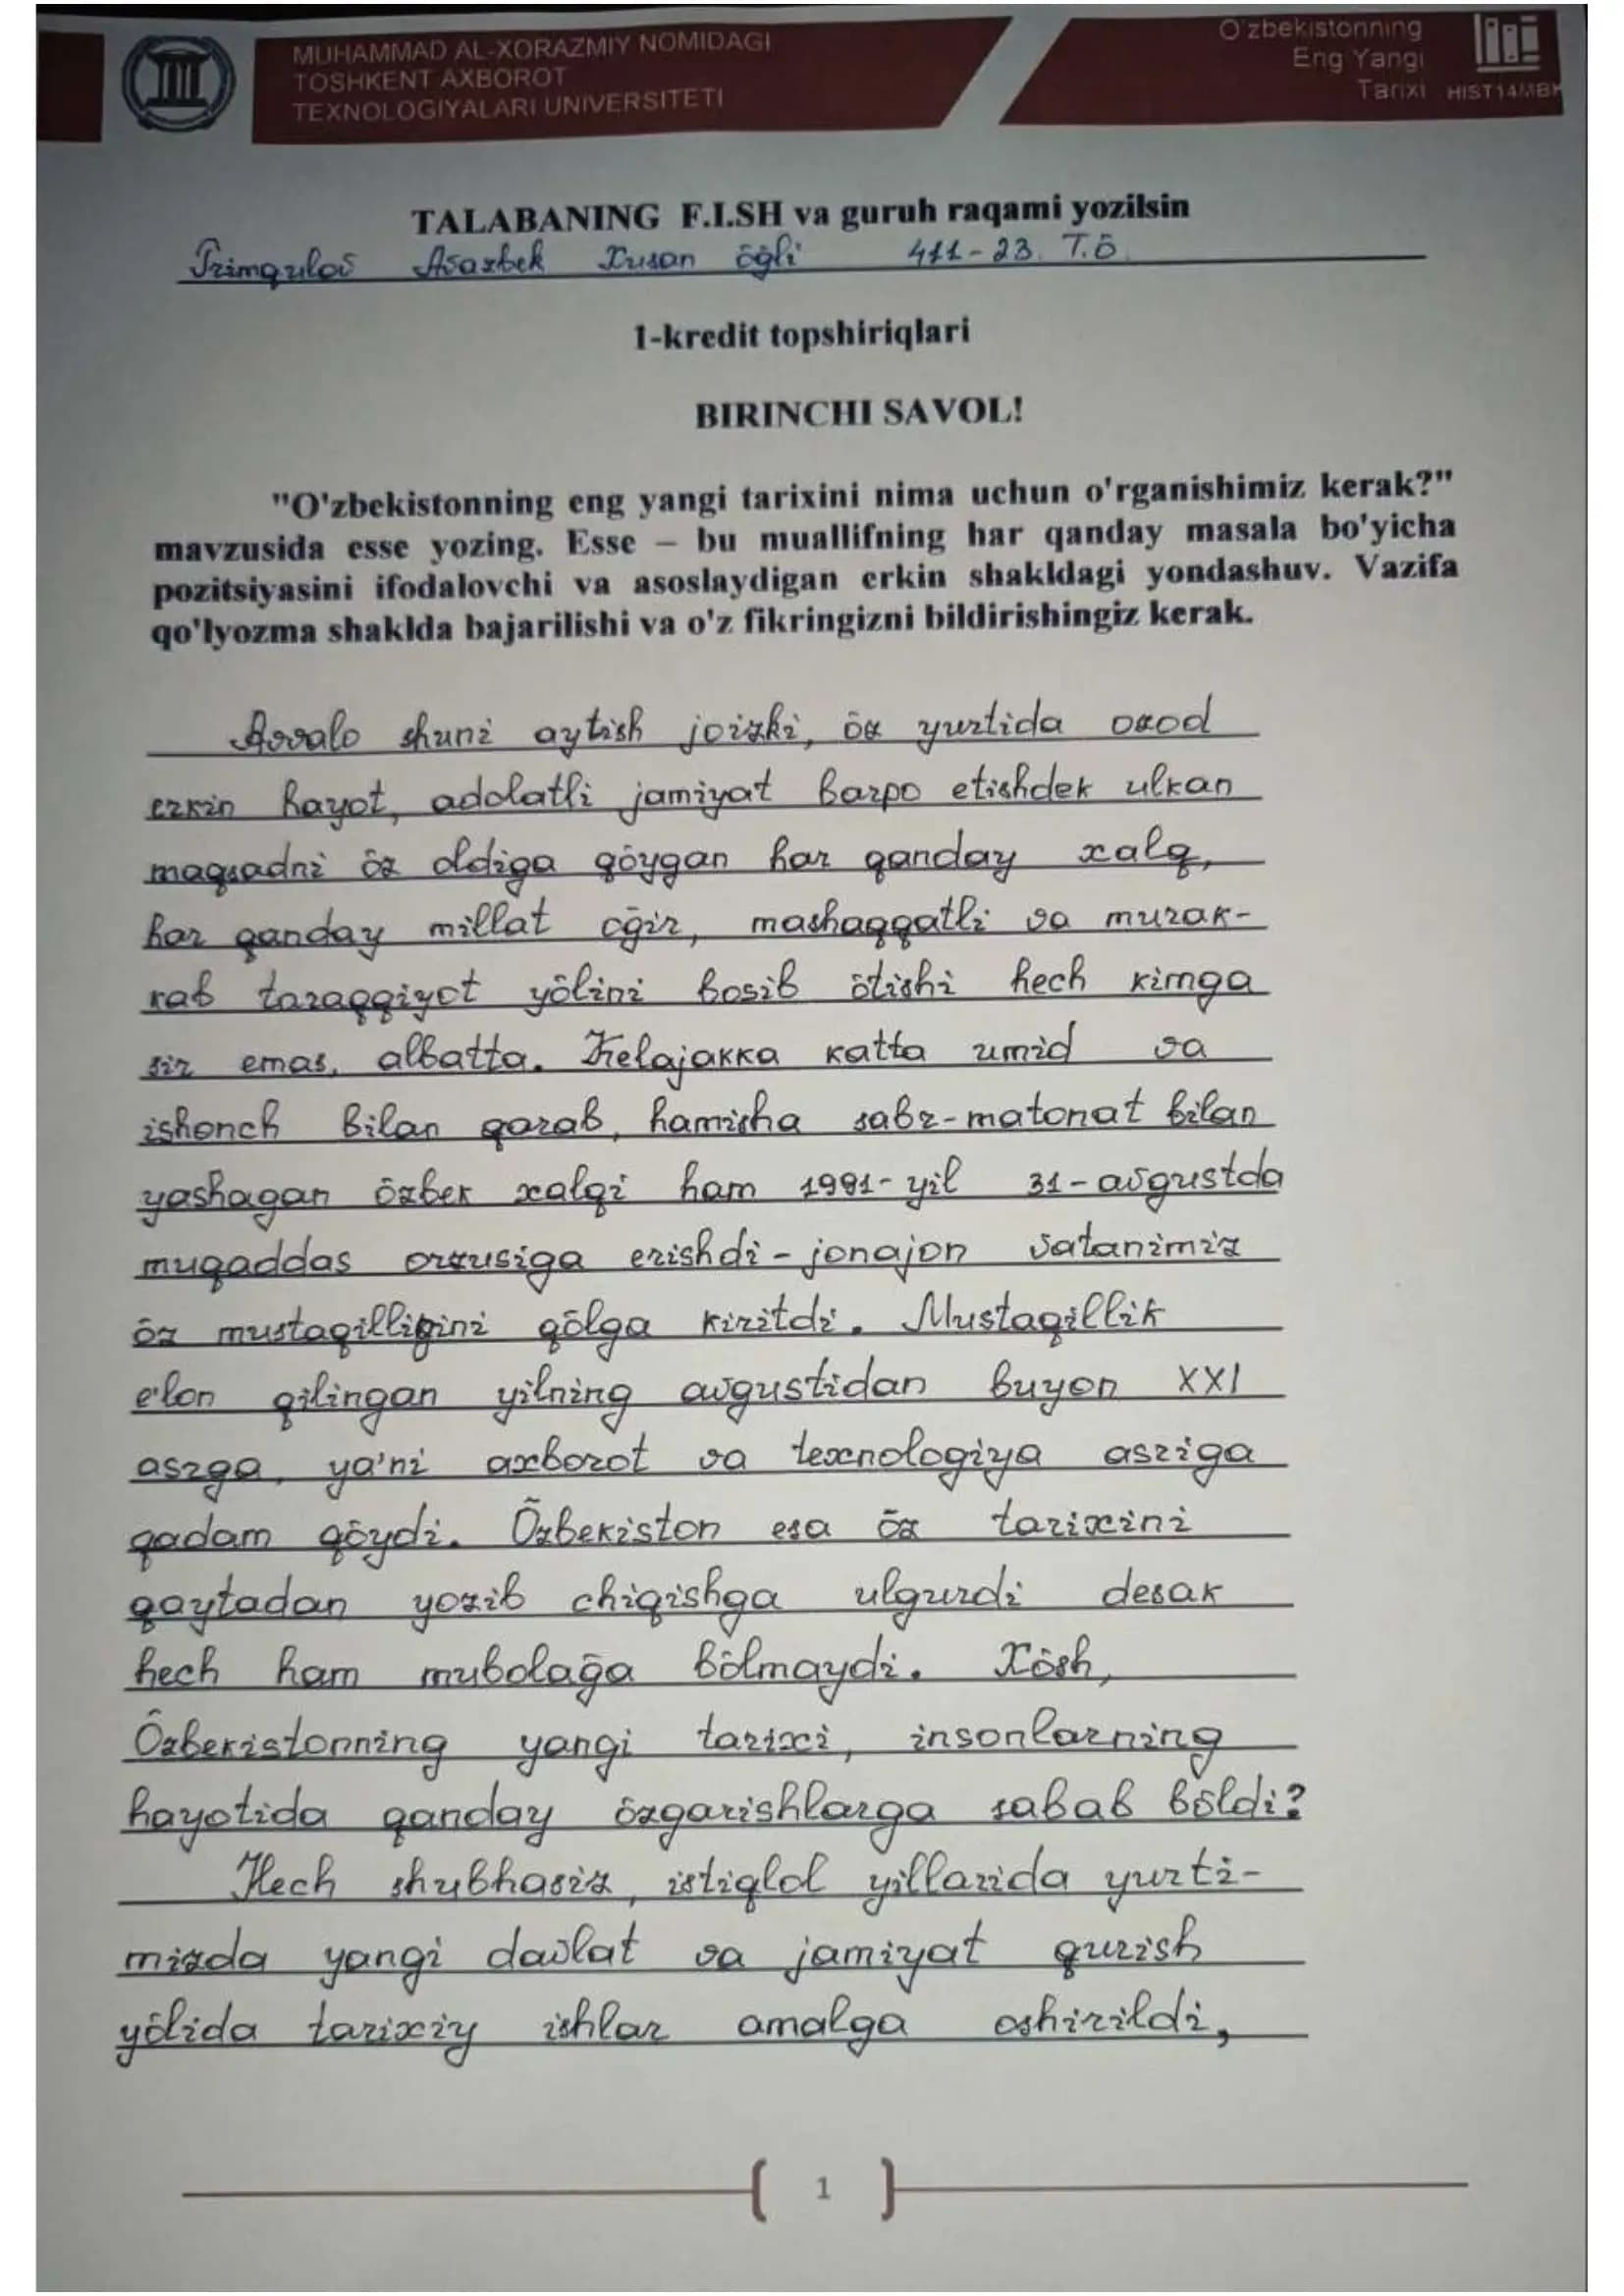 MUHAMMAD AL-XORAZMIY NOMIDAGI
TOSHKENT AXBOROT
TEXNOLOGIYALARI UNIVERSITETI
O'zbekistonning
Eng Yangi
Tarixi HIST14MBK
TALABANING F.I.SH va guruh raqami yozilsin
Asaxbek Xusan ōğli 411-23. T.Ō
1-kredit topshiriqlari
BIRINCHI SAVOL!
"O'zbekistonning eng yangi tarixini nima uchun o'rganishimiz kerak?"
mavzusida esse yozing. Esse – bu muallifning har qanday masala bo'yicha
pozitsiyasini ifodalovchi va asoslaydigan erkin shakldagi yondashuv. Vazifa
qo'lyozma shaklda bajarilishi va o'z fikringizni bildirishingiz kerak.
Avvalo shuni aytish joizki, ōz yurtida ozod
erkin hayot, adolatli jamiyat barpo etishdek ulkan
maqsadni ōz oldiga qōygan har qanday xalq,
har qanday millat oğir, mashaqqatli va murak-
kab taraqqiyot yōlini bosib ōtishi hech kimga
sir emas, albatta. Kelajakka katta umid va
ishonch bilan qarab, hamisha sabr-matonat bilan
yashagan ōzbek xalqi ham 1991-yil 31-avgustda
muqaddas orzusiga erishdi - jonajon vatanimiz
ōz mustaqilligini qōlga kiritdi. Mustaqillik
e'lon qilingan yilning avgustidan buyon XXI
asrga, ya'ni axborot va texnologiya asriga
qadam qōydi. Ōzbekiston esa ōz tarixini
qaytadan yozib chiqishga ulgurdi desak
hech ham mubolağa bōlmaydi. Xōsh,
Ōzbekistonning yangi tarixi, insonlarning
hayotida qanday ōzgarishlarga sabab bōldi?
Hech shubhasiz, istiqlol yillarida yurti-
mizda yangi davlat va jamiyat qurish
yōlida tarixiy ishlar amalga oshirildi,
1